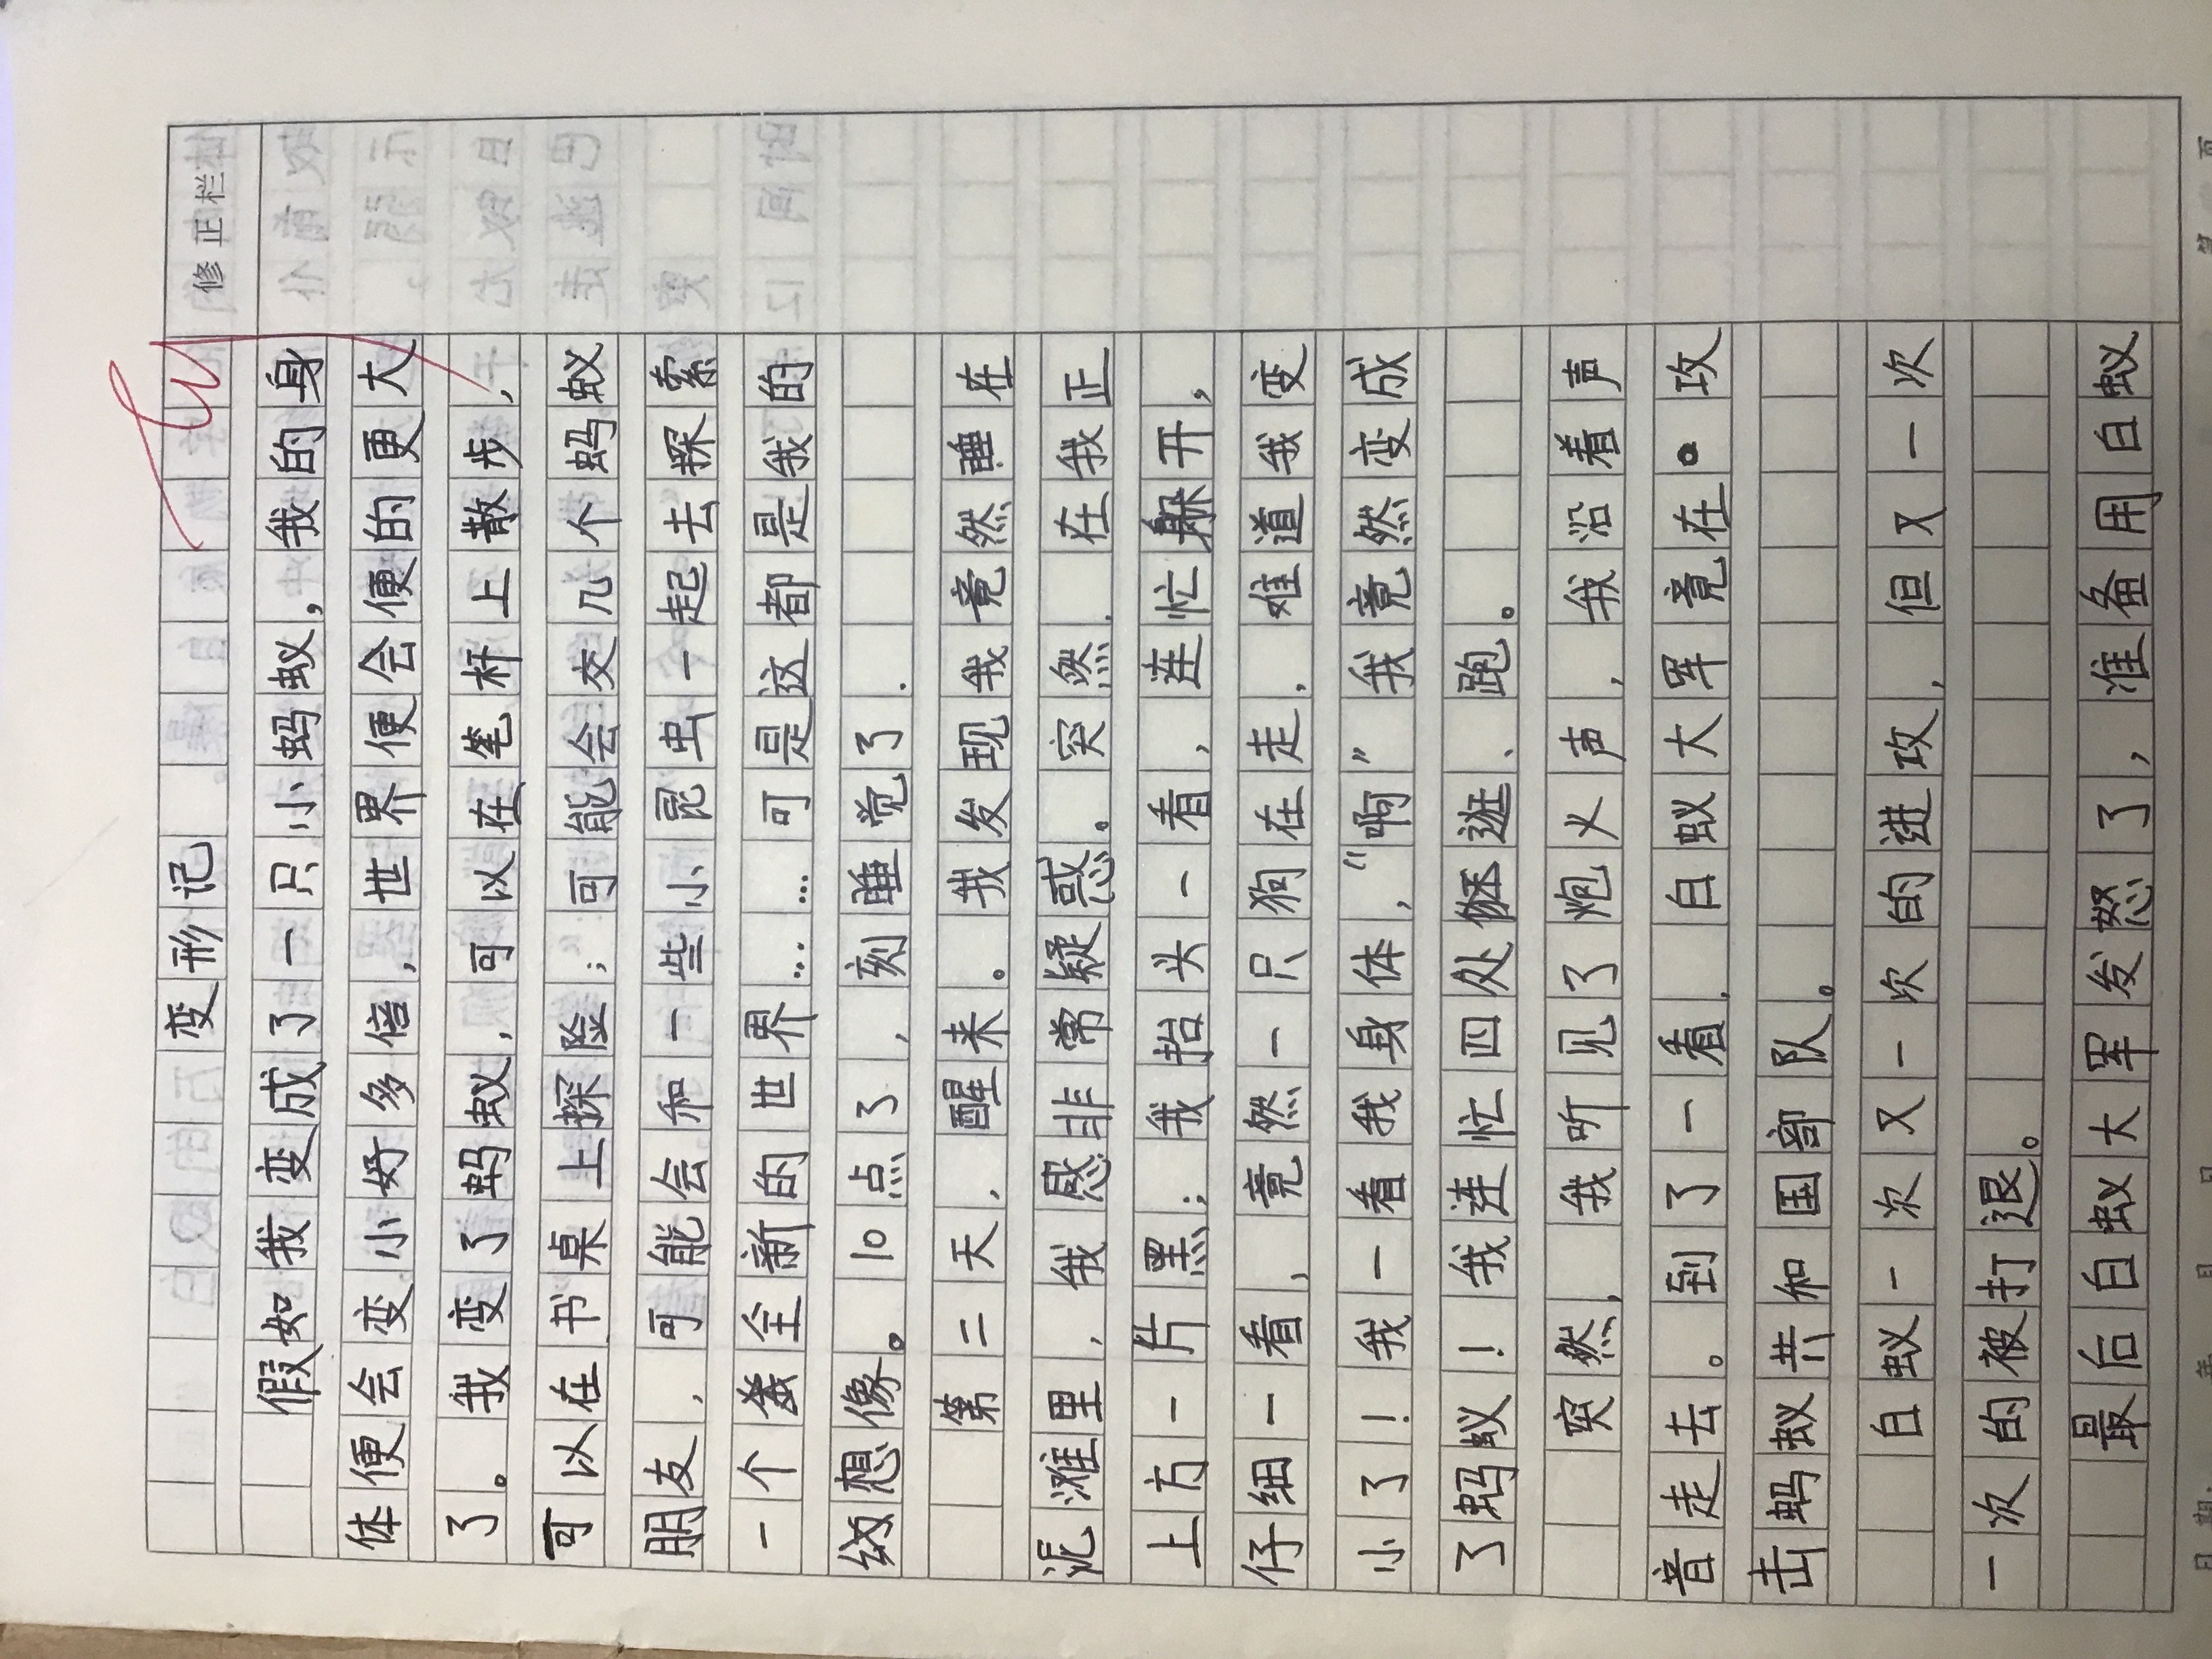 修正栏
变形记
假如我变成了一只小蚂蚁，我的身
体便会变小好多倍，世界便会便的更大
了。我变了蚂蚁，可以在笔杆上散步，
可以在书桌上探险；可能会交几个蚂蚁
朋友，可能会和一些小昆虫一起去探索
一个全新的世界……可是这都是我的
幼想像。10点了，刻睡觉了．
第二天，醒来。我发现我竟然睡在
泥滩里，我感非常疑惑。突然．在我正
上方一片黑；我抬头一看，连忙躲开，
仔细一看，竟然一只狗在走，难道我变
小了！我一看我身体，“啊”我竟然变成
了蚂蚁！我连忙四处逛、跑。
突然，我听见了炮火声，我沿着声
音走去。到了一看，白蚁大军竟在。攻
击蚂蚁共和国部队。
白蚁一次又一次的进攻，但又一次
一次的被打退。
最后白蚁大军发怒了，准备用白蚁
日期： 年 月 日 第 页